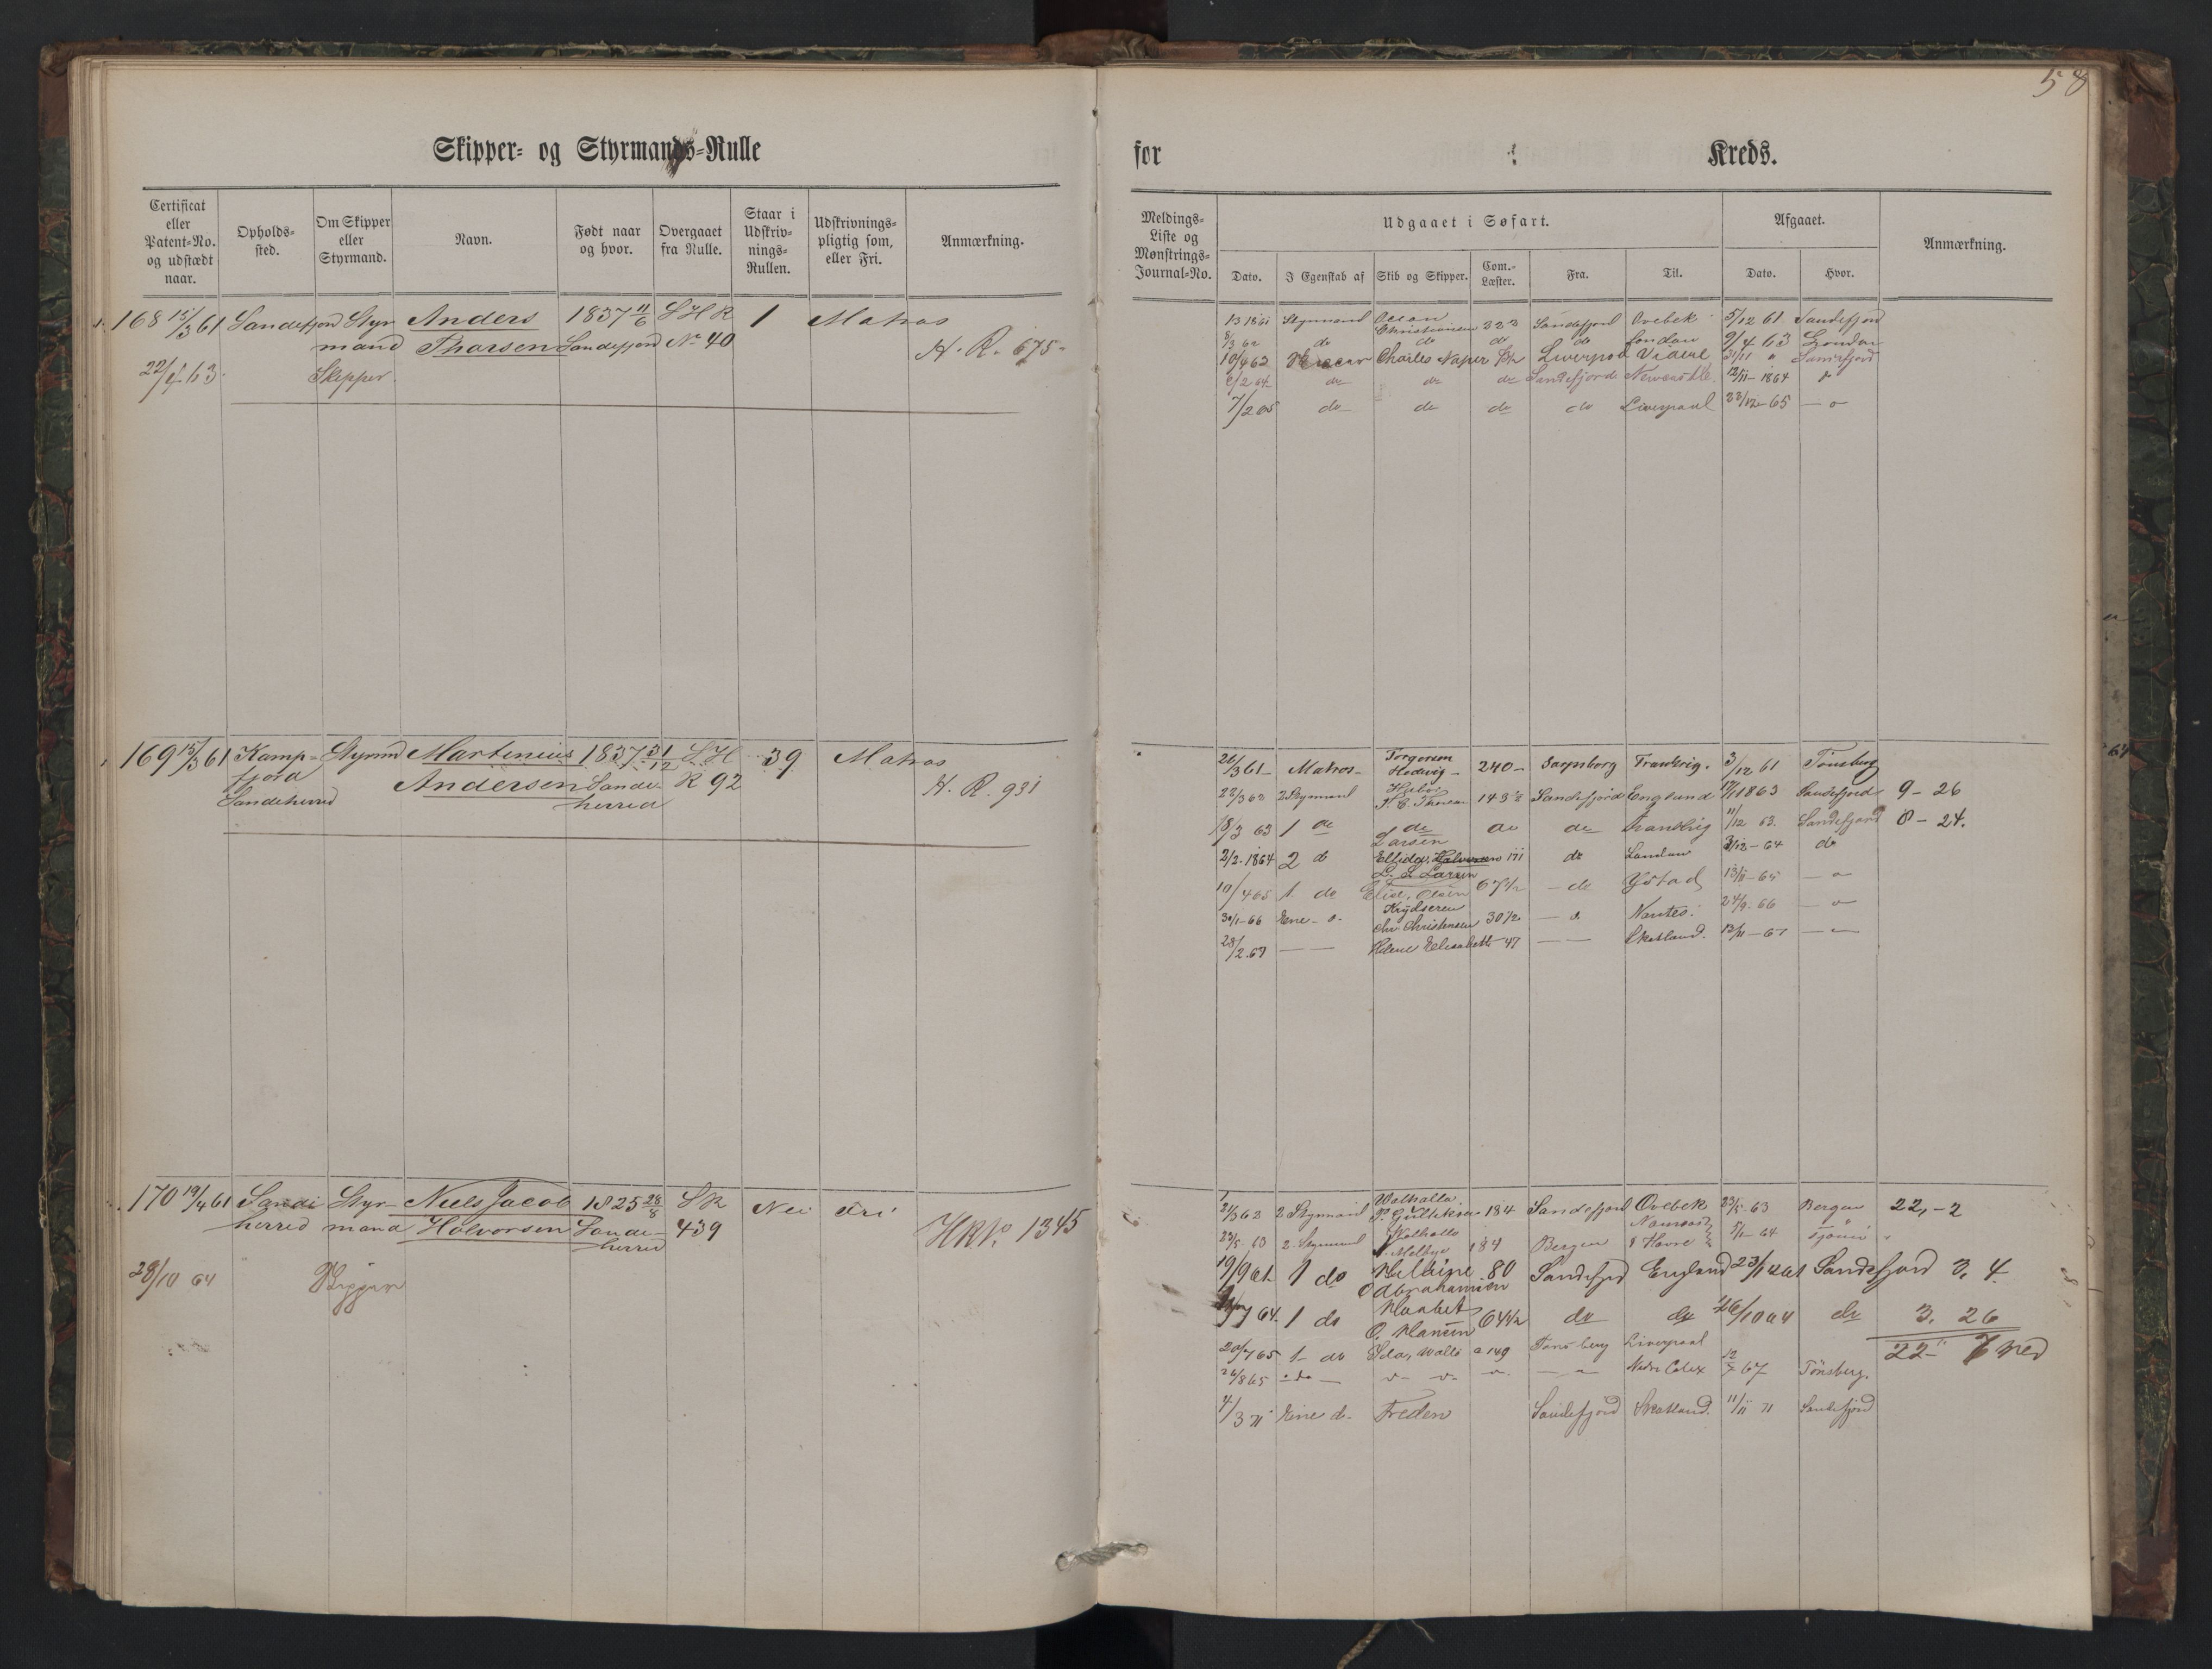 58
Skipper- og Styrmands-Rulle
for Kreds.
Certificat eller Patent-No. og udstædt naar.
Opholds-sted.
Om Skipper eller Styrmand.
Navn.
Født naar og hvor.
Overgaaet fra Rulle.
Staar i Udskriv-nings-Rullen.
Udskrivnings-pligtig som, eller Fri.
Anmærkning.
Meldings-Liste og Mønstrings-Journal-No.
Udgaaet i Søfart.
Afgaaet.
Anmærkning.
Dato. I Egenskab af Skib og Skipper. Com.-Læster. Fra. Til. Dato. Hvor.
168 15/3 61 Sandefjord Styr Anders 1837 11/6 SHR 1 Matros
mand Thorsen Sandefjord No 40
H. R. 675-
22/4 63. Skipper.
13 1861 Styrmand Ocean Christiansen 323 Sandefjord Ovebek 5/12 61 Sandefjord
8/3 62 do do do do London 9/4 63 London
10/4 63 Charles Napier Liverpool 31/11 " Sandefjord
6/2 64 do do do Sandefjord Newcastle 12/11-1864
7/2 65 do do do do Liverpool 23/12-65 - o
169 15/3 61 Kamp- Styrmd Martinius 1837 31/12 S.H 39 Matros
fjord Andersen Sande- R 92
Sandeherred herred
H. R. 931
26/3 61- Matros- Torgersen
Hedvig- 240- Sarpsborg Frankrig. 3/12 61 Tönsberg
22/3 62 2 Styrmand
143 1/2 Sandefjord England 17/1 1863 Sandefjord 9 - 26
18/3 63 1 do do do do Frankrig 11/12 63. Sandefjord 8 - 24.
Larsen
2/2-1864 2 do Ellida, Halvorsen 111 do London 3/12-64 do
L. L. Larsen
10/4 65 1. do Elise, Olsen 67 1/2 - do Ystad 13/11-65 - o
Krydseren
30/1-66 Ene- o- Chr Christensen 30 1/2 - o Nantes. 24/9. 66 - o
28/2.67 - - Helene Elisabeth 47 - - Skotland. 13/11-67 - -
170 19/4 61 Sande Styr- Niels Jacob 1825 28/8 S R Nei Fri
herred mand Halvorsen Sande- 439
herred
HRNo 1345
28/10 64 Skipper
Valhalla.
2/3 63 2 Styrmand P. Gulliksen 184 Sandefjord Ovebek 23/5-63 Bergen 22,-2
23/5. 63 2. Styrmand Valhalla
Melbye 184 Bergen & Havre 5/1-64
19/9 61 1 do 80 Sandefjord England 23/1261 Sandefjord 3, 4.
Abrahamsen
7 64. 1 do Haabet 64 1/2 do do 26/10 64 do 3. 26
O. Hansen
22- 7 ned
20/7 65 1- do Ida, 149 Tönsberg Liverpool
26/8 65 - do - 12/7 67 Tönsberg.
4/3 71 Ene d- Freden Sandefjord Skotland. 11/11 71 Sandefjord